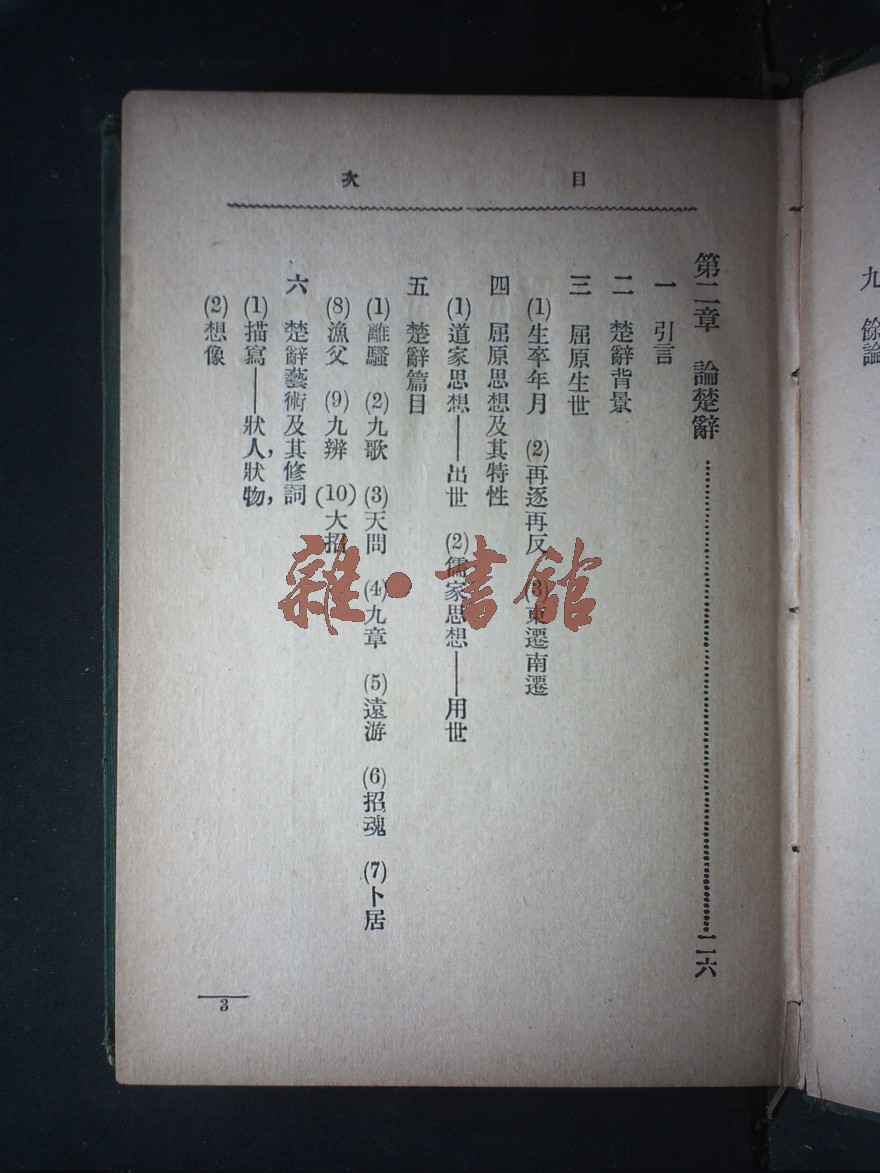 目次
第二章 論楚辭……………………二六
一 引言
二 楚辭背景
三 屈原生世
(1)生卒年月 (2)再逐再反 (3)東遷南遷
四 屈原思想及其特性
(1)道家思想——出世 (2)儒家思想——用世
五 楚辭篇目
(1)離騷 (2)九歌 (3)天問 (4)九章 (5)遠游 (6)招魂 (7)卜居
(8)漁父 (9)九辨 (10)大招
六 楚辭藝術及其修詞
(1)描寫——狀人,狀物,
(2)想像
3
九 餘論
雜·書館